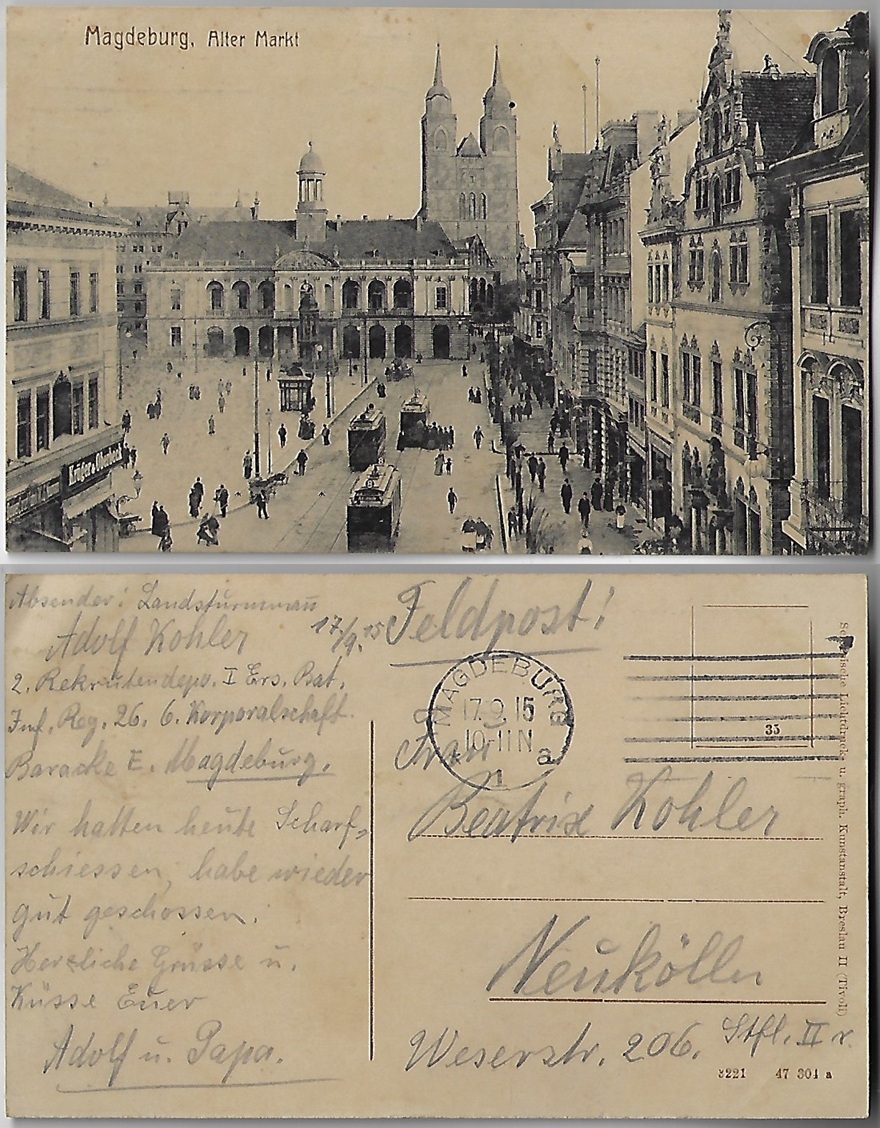 Magdeburg, Alter Markt
Krüger & Oberbeck
Absender: Landsturmmañ
Adolf Kohler
17/9.15
2. Rekrutendepo. I Ers. Bat.
Inf. Reg. 26. 6. Korporalschaft.
Baracke E. Magdeburg.
Wir hatten heute Scharf-
schiessen, habe wieder
gut geschossen.
Herzliche Grüsse u.
Küsse Euer
Adolf u. Papa.
Feldpost!
MAGDEBURG
17.9.15
10-11N
1 a
35
Frau
Beatrix Kohler
Neukölln
Weserstr. 206. Stfl. II r.
8221 47 304 a
Schlesische Lichtdruck- u. graph. Kunstanstalt, Breslau II (Tivoli)